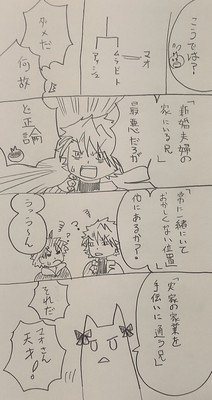 こうでは?
マオ
ムラビト
アンジュ
ダメだ
何故
「新婚夫婦の
家にいる兄」
最悪だろが
ど正論
常に一緒にいて
おかしくない位置
他にあるか?
うっうーん
?
?
?
「実家の家業を
手伝いに通う兄」
それだ
マオさん
天才!